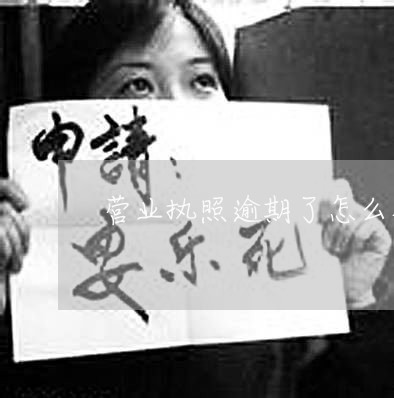 申請：
营业执照逾期了怎么
要乐死